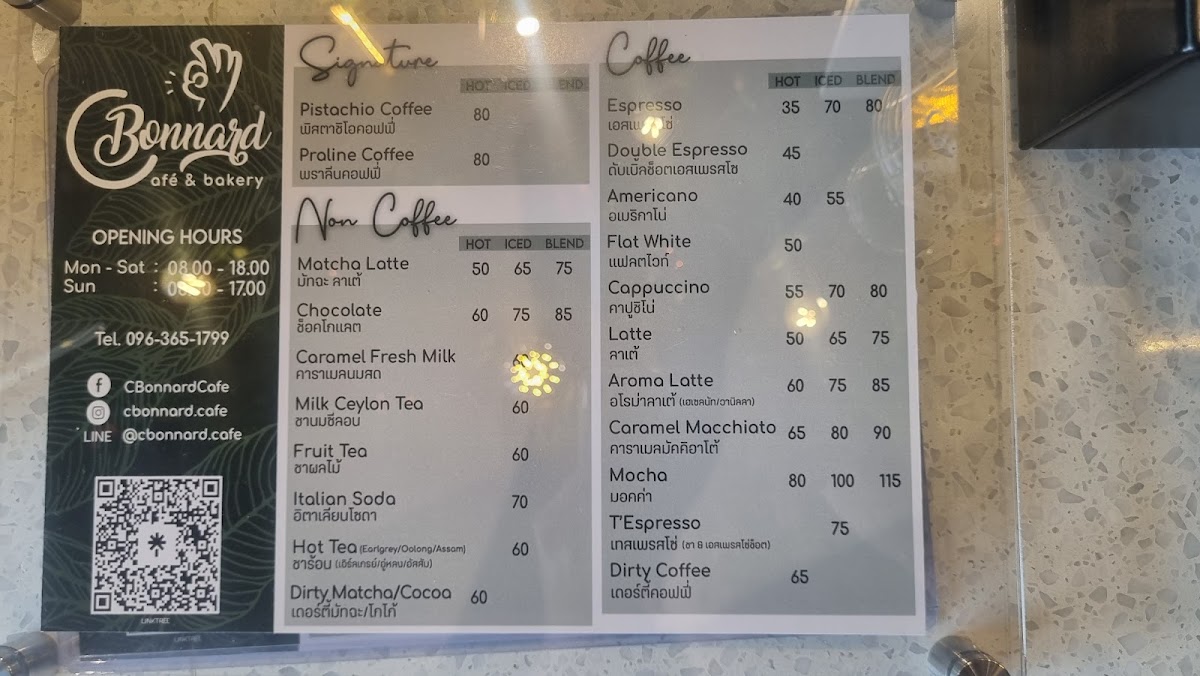 CBonnard
afé & bakery
OPENING HOURS
Mon - Sat : 08.00 - 18.00
Sun : - 17.00
Tel. 096-365-1799
CBonnardCafe
cbonnard.cafe
LINE @cbonnard.cafe
LINKTREE
LINKTREE
Signature
HOT ICED BLEND
Pistachio Coffee 80
พิสตาชิโอคอฟฟี่
Praline Coffee 80
พราลีนคอฟฟี่
Non Coffee
HOT ICED BLEND
Matcha Latte 50 65 75
มัทฉะ ลาเต้
Chocolate 60 75 85
ช็อคโกแลต
Caramel Fresh Milk
คาราเมลนมสด
Milk Ceylon Tea 60
ชานมซีลอน
Fruit Tea 60
ชาผลไม้
Italian Soda 70
อิตาเลียนโซดา
Hot Tea (Earlgrey/Oolong/Assam) 60
ชาร้อน (เอิร์ลเกรย์/อู่หลง/อัสสัม)
Dirty Matcha/Cocoa 60
เดอร์ตี้มัทฉะ/โกโก้
Coffee
HOT ICED BLEND
Espresso 35 70 80
เอสเพรสโซ่
Double Espresso 45
ดับเบิ้ลช็อตเอสเพรสโซ
Americano 40 55
อเมริกาโน่
Flat White 50
แฟลตไวท์
Cappuccino 55 70 80
คาปูชิโน่
Latte 50 65 75
ลาเต้
Aroma Latte 60 75 85
อโรม่าลาเต้ (เฮเซลนัท/วานิลลา)
Caramel Macchiato 65 80 90
คาราเมลมัคคิอาโต้
Mocha 80 100 115
มอคค่า
T'Espresso 75
เทสเพรสโซ่ (ชา & เอสเพรสโซ่ช็อต)
Dirty Coffee 65
เดอร์ตี้คอฟฟี่